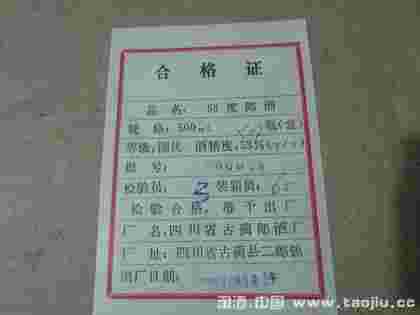 合格证
品名:53度郎酒
规格:500ml 瓶(盒)
等级:国优 酒精度:53%(v/v)
批号:
检验员:3 装箱员:
检验合格,准予出厂
厂名:四川省古蔺郎酒厂
厂址:四川省古蔺县二郎镇
出厂日期:
淘酒·中国 www.taojiu.cc